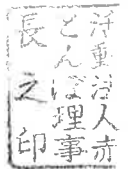 活動法人赤
とんぼ理事
長之印